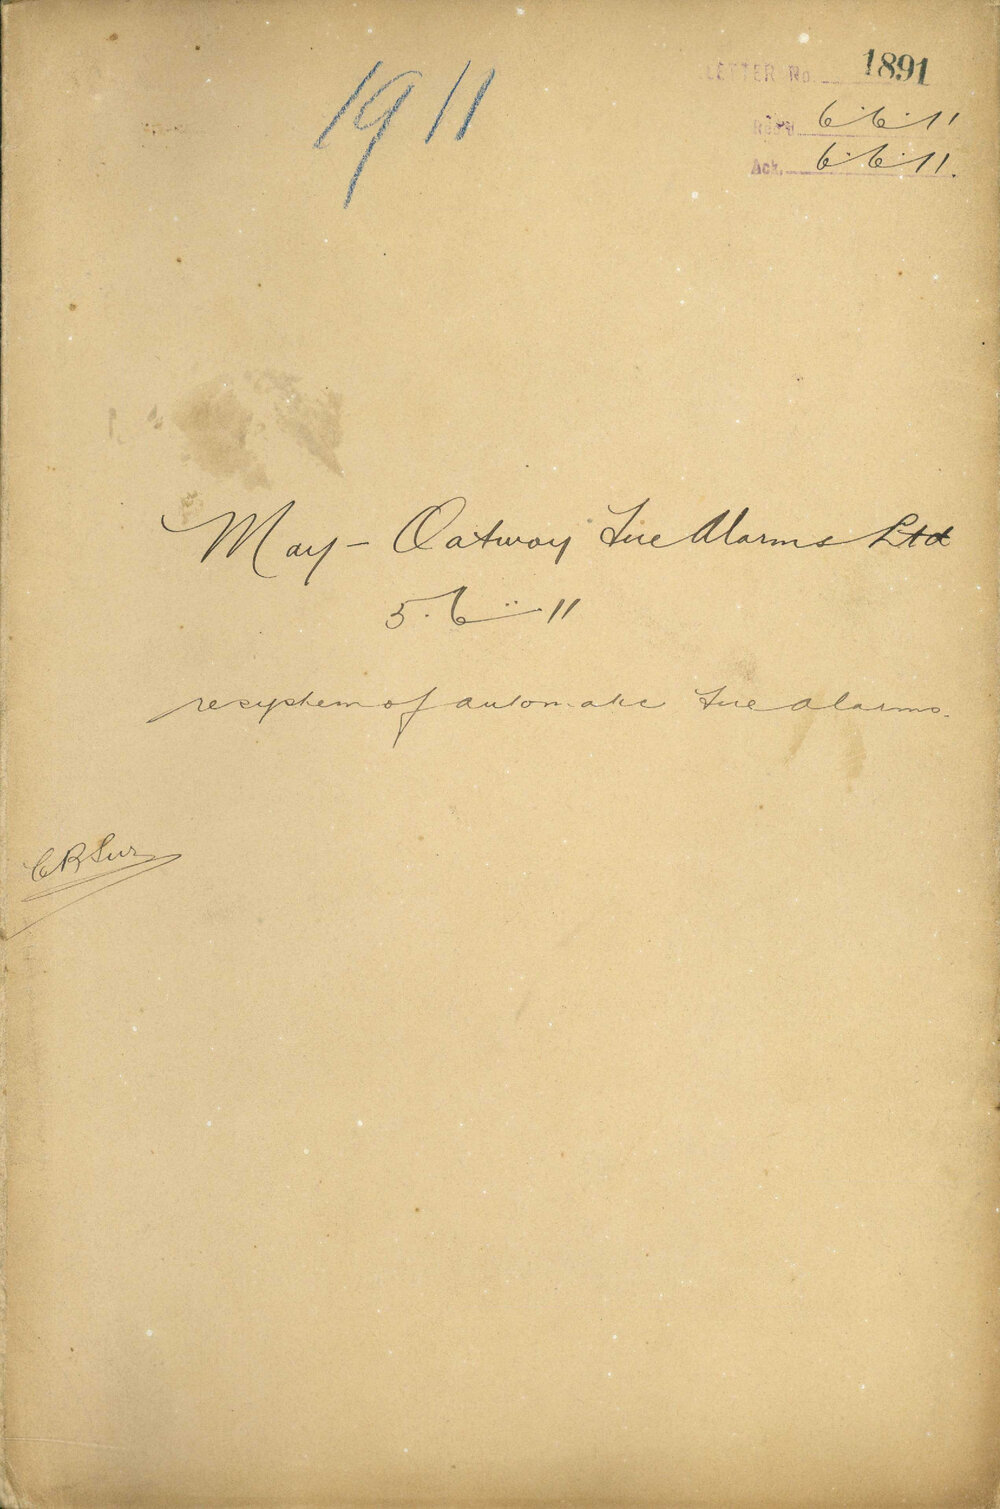 1911
LETTER No. 1891
Rec'd 6.6.11
Ack. 6.6.11.
May-Oatway Fire Alarms Ltd
5.6.11
re system of automatic Fire Alarms.